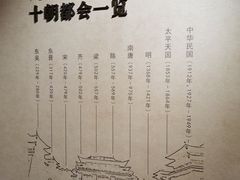 十朝都会一览
中华民国（1912年、1927年-1949年）
太平天国（1853年-1864年）
明（1368年-1421年）
南唐（937年-975年）
陈（557年-589年）
梁（502年-557年）
齐（479年-502年）
宋（420年-479年）
东晋（317年-420年）
东吴（229年-280年）